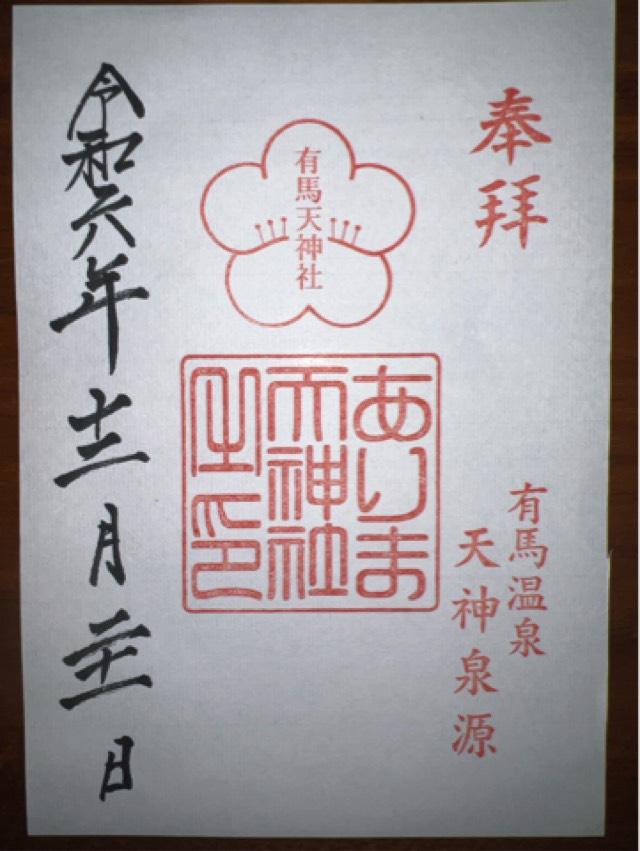 奉拝
有馬温泉
天神泉源
有馬天神社
ありま
天神社
之印
令和六年十二月二十一日